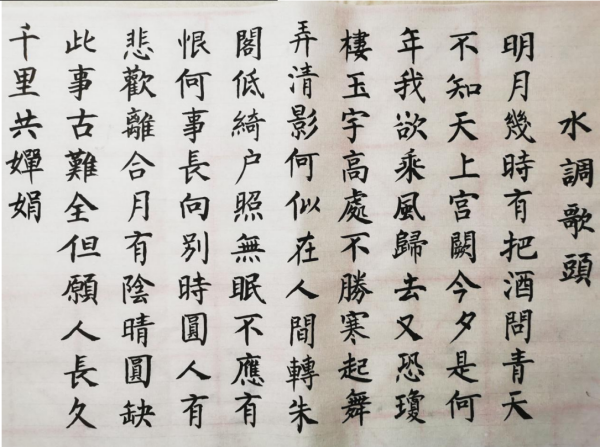 水調歌頭
明月幾時有把酒問青天
不知天上宮闕今夕是何
年我欲乘風歸去又恐瓊
樓玉宇高處不勝寒起舞
弄清影何似在人間轉朱
閣低綺户照無眠不應有
恨何事長向别時圓人有
悲歡離合月有陰晴圓缺
此事古難全但願人長久
千里共嬋娟